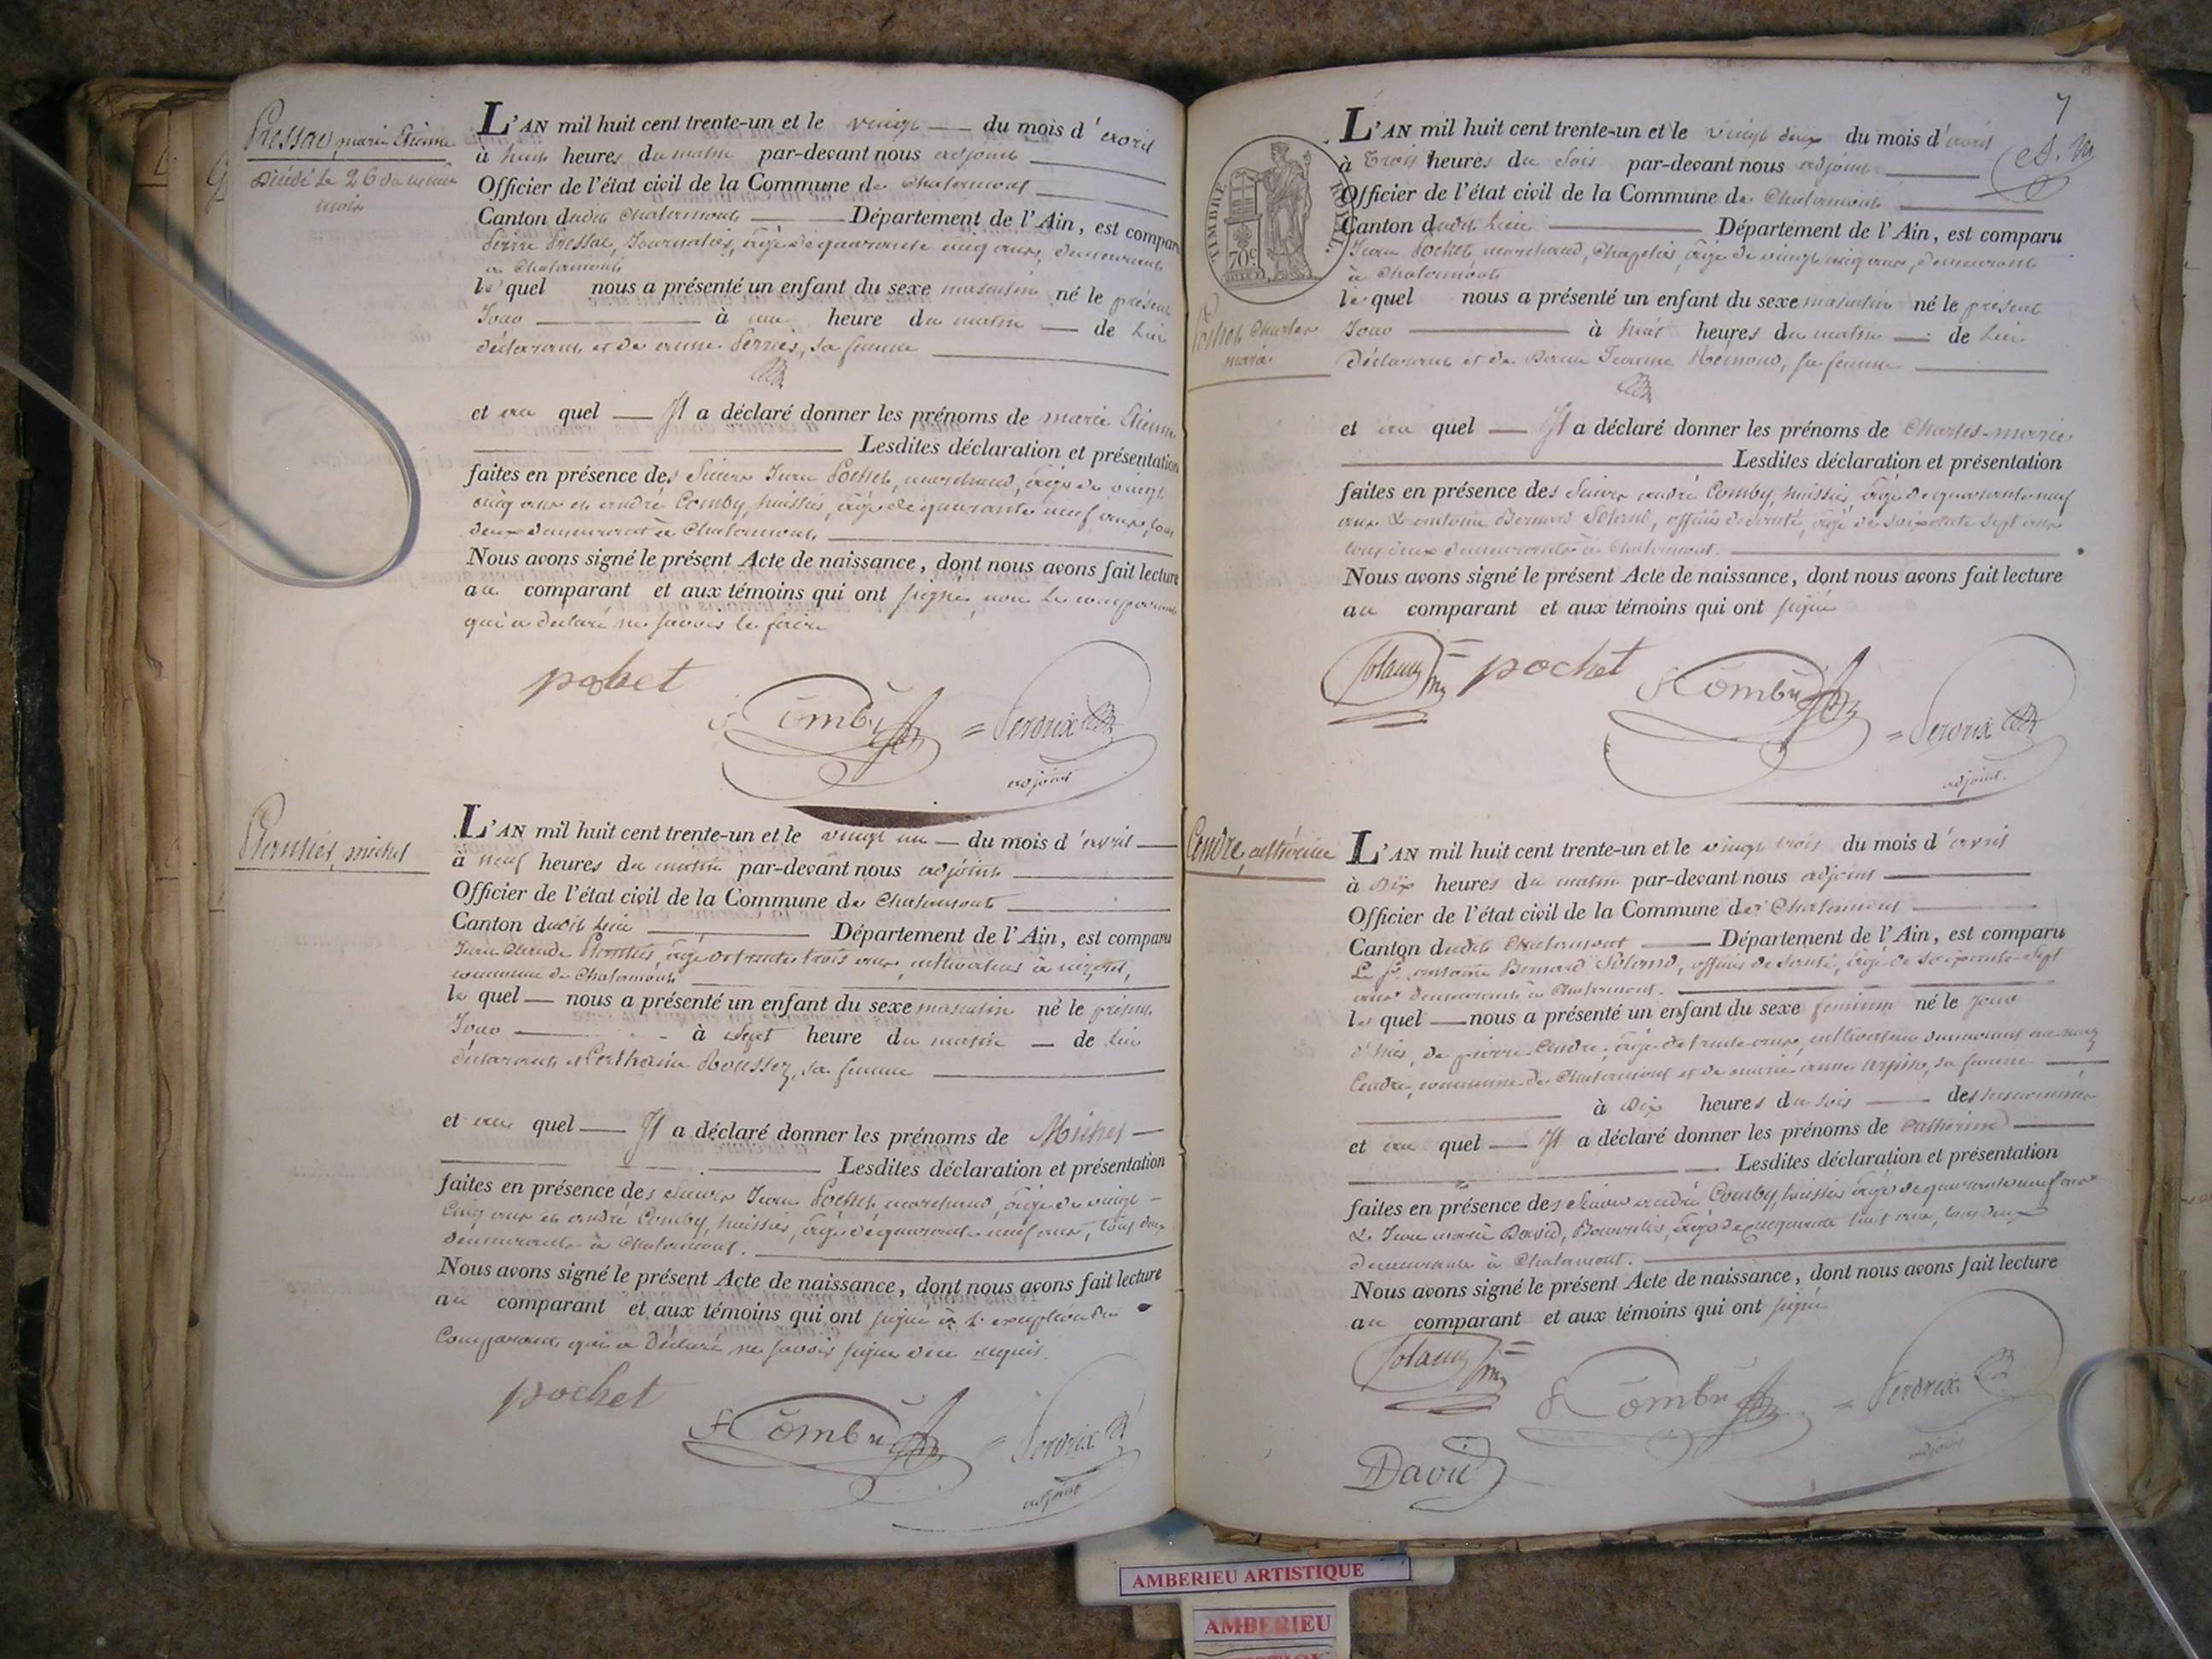 Pressac, marie Etienne
Décédé le 26 du même
mois
L'AN mil huit cent trente-un et le vingt du mois d'avril
à huit heures du matin par-devant nous adjoint
Officier de l'état civil de la Commune de Chalamont
Canton dudit Chalamont Département de l'Ain, est comparu
Pierre Pressac, Journalier, âgé de quarante cinq ans, demeurant
à Chalamont
lequel nous a présenté un enfant du sexe masculin né le présent
Jour à une heure du matin de lui
déclarant et de anne Perrier, sa femme
et au quel Il a déclaré donner les prénoms de marie Etienne
Lesdites déclaration et présentation
faites en présence des Sieurs Jean Pochet, marchand, âgé de vingt
cinq ans et andré Comby, huissier, âgé de quarante neuf ans, tous
deux demeurant à Chalamont
Nous avons signé le présent Acte de naissance, dont nous avons fait lecture
au comparant et aux témoins qui ont signé, non le comparant
qui a déclaré ne savoir le faire
pochet
Comby
Perdrix
adjoint
michel
L'AN mil huit cent trente-un et le vingt un du mois d'avril
à neuf heures du matin par-devant nous adjoint
Officier de l'état civil de la Commune de Chalamont
Canton dudit lieu Département de l'Ain, est comparu
Jean Claude âgé de trente trois ans, cultivateur à
commune de Chalamont
le quel nous a présenté un enfant du sexe masculin né le présent
Jour à sept heure du matin de lui
déclarant et Cathérine Rousset, sa femme
et au quel Il a déclaré donner les prénoms de Michel
Lesdites déclaration et présentation
faites en présence des Sieurs Jean Pochet, marchand, âgé de vingt
Cinq ans et andré Comby, huissier, âgé de quarante neuf ans, tous deux
demeurants à Chalamont.
Nous avons signé le présent Acte de naissance, dont nous avons fait lecture
au comparant et aux témoins qui ont signé à l'exception du
Comparant qui a déclaré ne savoir signer de ce requis.
pochet
Comby
Perdrix
adjoint
7
TIMBRE ROYAL
70c
Pochet, Charles
marie
L'AN mil huit cent trente-un et le vingt deux du mois d'avril
à Trois heures du Soir par-devant nous adjoint
Officier de l'état civil de la Commune de Chalamont
Canton dudit lieu Département de l'Ain, est comparu
Jean Pochet, marchand, Chapelier, âgé de vingt cinq ans, demeurant
à Chalamont
le quel nous a présenté un enfant du sexe masculin né le présent
Jour à huit heures du matin de lui
Déclarant et de Jeanne Rémond, sa femme
et au quel Il a déclaré donner les prénoms de Charles-marie
Lesdites déclaration et présentation
faites en présence des Sieurs andré Comby, huissier, âgé de quarante neuf
ans & antoine Bernard officier de santé, âgé de soixante sept ans
tous deux demeurants à Chalamont.
Nous avons signé le présent Acte de naissance, dont nous avons fait lecture
au comparant et aux témoins qui ont signé
pochet
Comby
Perdrix
adjoint.
Cendre, cathérine
L'AN mil huit cent trente-un et le vingt trois du mois d'avril
à dix heures du matin par-devant nous adjoint
Officier de l'état civil de la Commune de Chalamont
Canton dudit Chalamont Département de l'Ain, est comparu
Le Sr. antoine Bernard officier de santé, âgé de soixante-sept
ans demeurant à Chalamont.
le quel nous a présenté un enfant du sexe féminin né le jour
d'hier, de pierre Cendre, âgé de trente ans, cultivateur demeurant
Cendre, commune de Chalamont et de marie anne sa femme
à dix heures du soir des susnommés
et au quel Il a déclaré donner les prénoms de Cathérine
Lesdites déclaration et présentation
faites en présence des Sieurs andré Comby, huissier âgé de quarante neuf ans
& Jean marie David, Bourrelier, âgé de cinquante huit ans, tous deux
demeurants à Chalamont.
Nous avons signé le présent Acte de naissance, dont nous avons fait lecture
au comparant et aux témoins qui ont signé
Comby
Perdrix
adjoint
David
AMBERIEU ARTISTIQUE
AMBERIEU